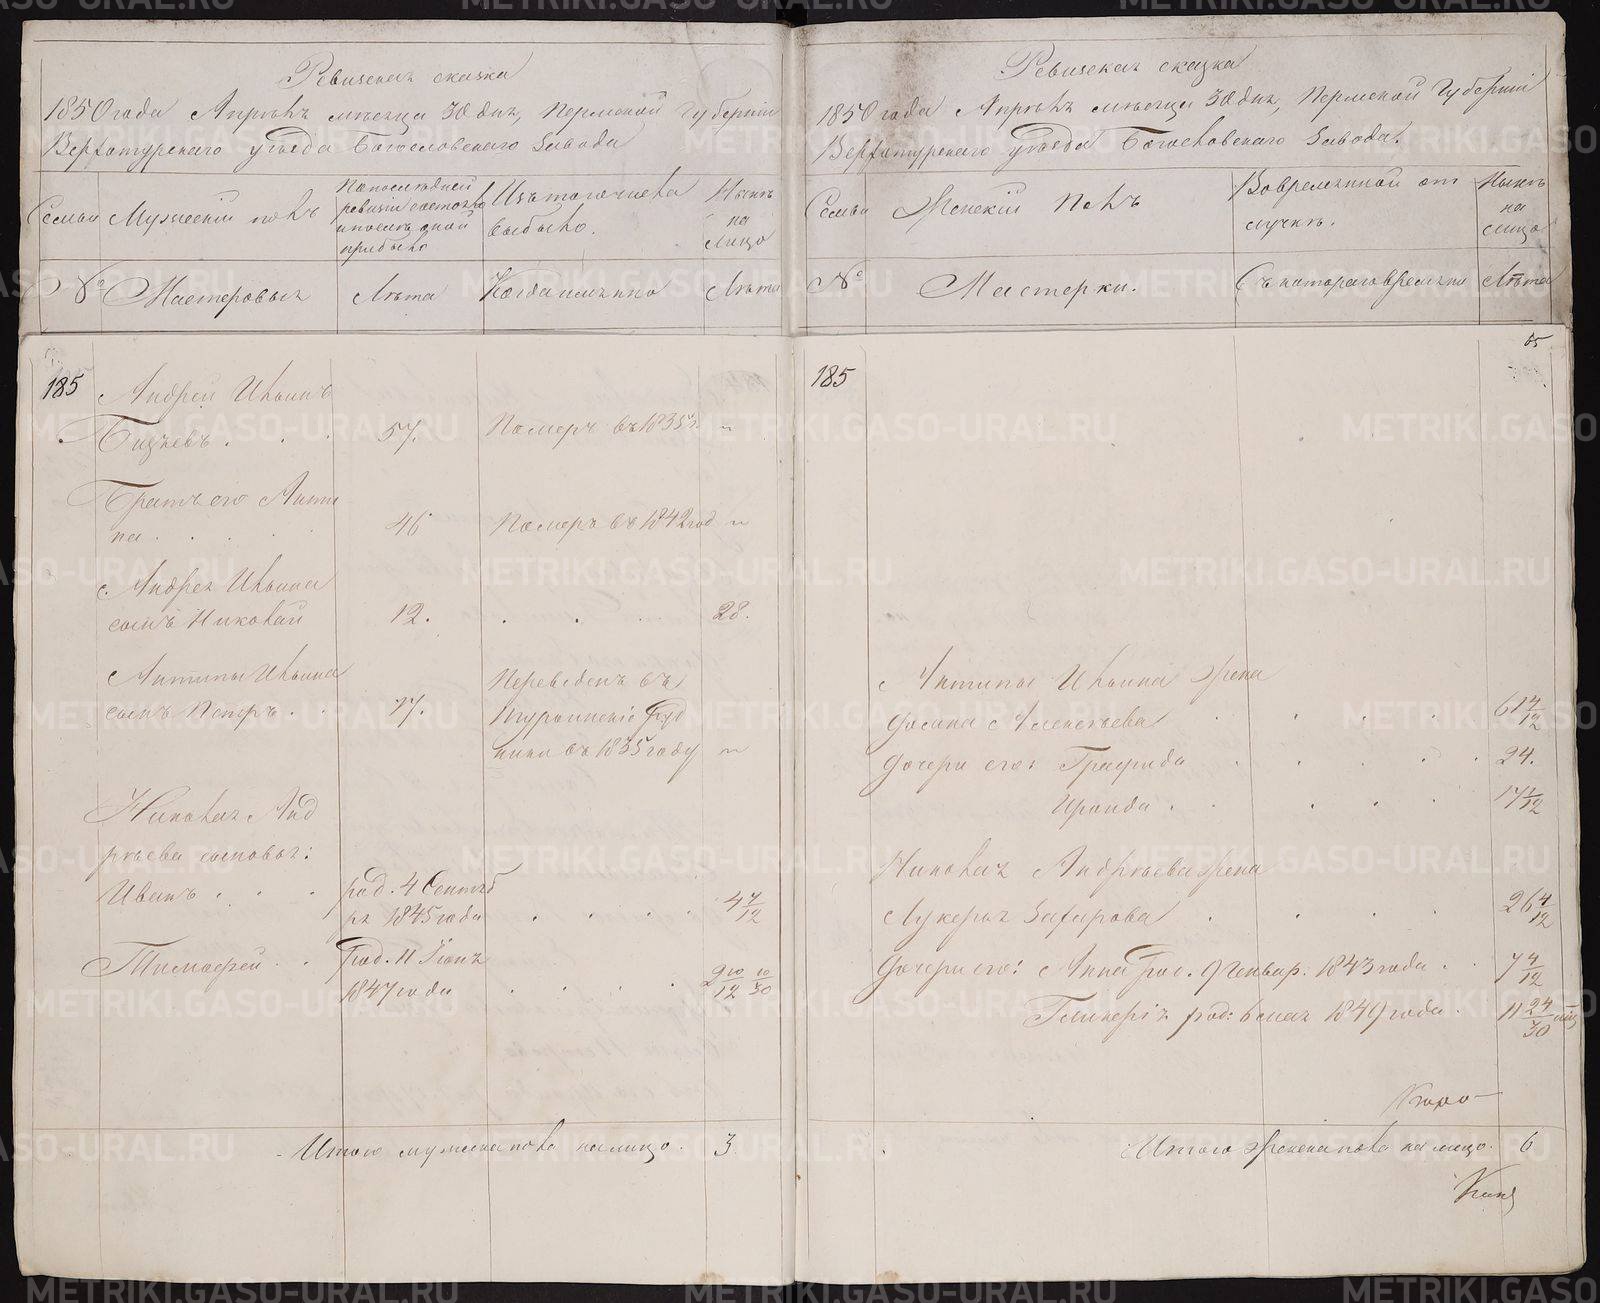 Ревизская сказка
1850 года Апрѣля мѣсяца 30 дня, Пермской Губерніи
Верхотурскаго уѣзда Богословскаго Завода
Семьи
Мужескій полъ
По последней
ревизіи состояло
и после оной
прибыло
Изъ того числа
выбыло.
Нынѣ
на
лицо
№
Мастеровыя
Лѣта
Когда именно
Лѣта
185
Андрей Ильинъ
57.
Померъ въ 1835 г.
"
Братъ его Анти
па . . . .
46
Померъ въ 1842 год
"
Андрея Ильина
сынъ Николай
12.
28.
Антипы Ильина
сынъ Петръ . .
17.
Переведенъ въ
Турьинскіе Руд
ники въ 1835 году
"
Николая Анд
рѣева сыновья:
Иванъ . . .
род. 4 Сентяб
ря 1845 года
4 7/12
Тимофей . .
род. 11 Іюня
1847 года
2 10/12 10/30
Итого мужеска пола на лицо.
3
Ревизская сказка
1850 года Апрѣля мѣсяца 30 дня, Пермской Губерніи
Верхотурскаго уѣзда Богословскаго Завода.
Семьи
Женскій Полъ
Во временной от
лучкѣ.
Нынѣ
на
лицо
№
Мастерки.
Съ котораго времени
Лѣта
65
185
Антипы Ильина жена
Алексѣева
61 4/12
Дочери его: Графида
24.
Ираида .
17 1/12
Николая Андрѣева жена
Лукерья Захарова
26 4/12
Дочери его: Анна род. 9 Генвар. 1843 года .
7 4/12
Гликерія род: 6 мая 1849 года .
11 24/30 мѣс
Итого женска пола на лицо.
6